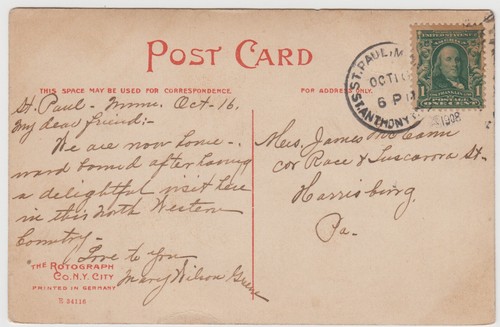 POST CARD
THIS SPACE MAY BE USED FOR CORRESPONDENCE.
FOR ADDRESS ONLY.
St. Paul - Minn. Oct-16.
My dear friend:-
We are now home-
ward bound after having
a delightful visit here
in this North Western
Country-
Love to you
Mary Wilson Greene
Mrs. James McCame
cor Race & Tuscarora St-
Harrisburg.
Pa-
ST. PAUL, M
OCT 16
6 P
ST. ANTHONY
1908
1
POSTAGE
ONE CENT
THE ROTOGRAPH
CO. N.Y. CITY
PRINTED IN GERMANY